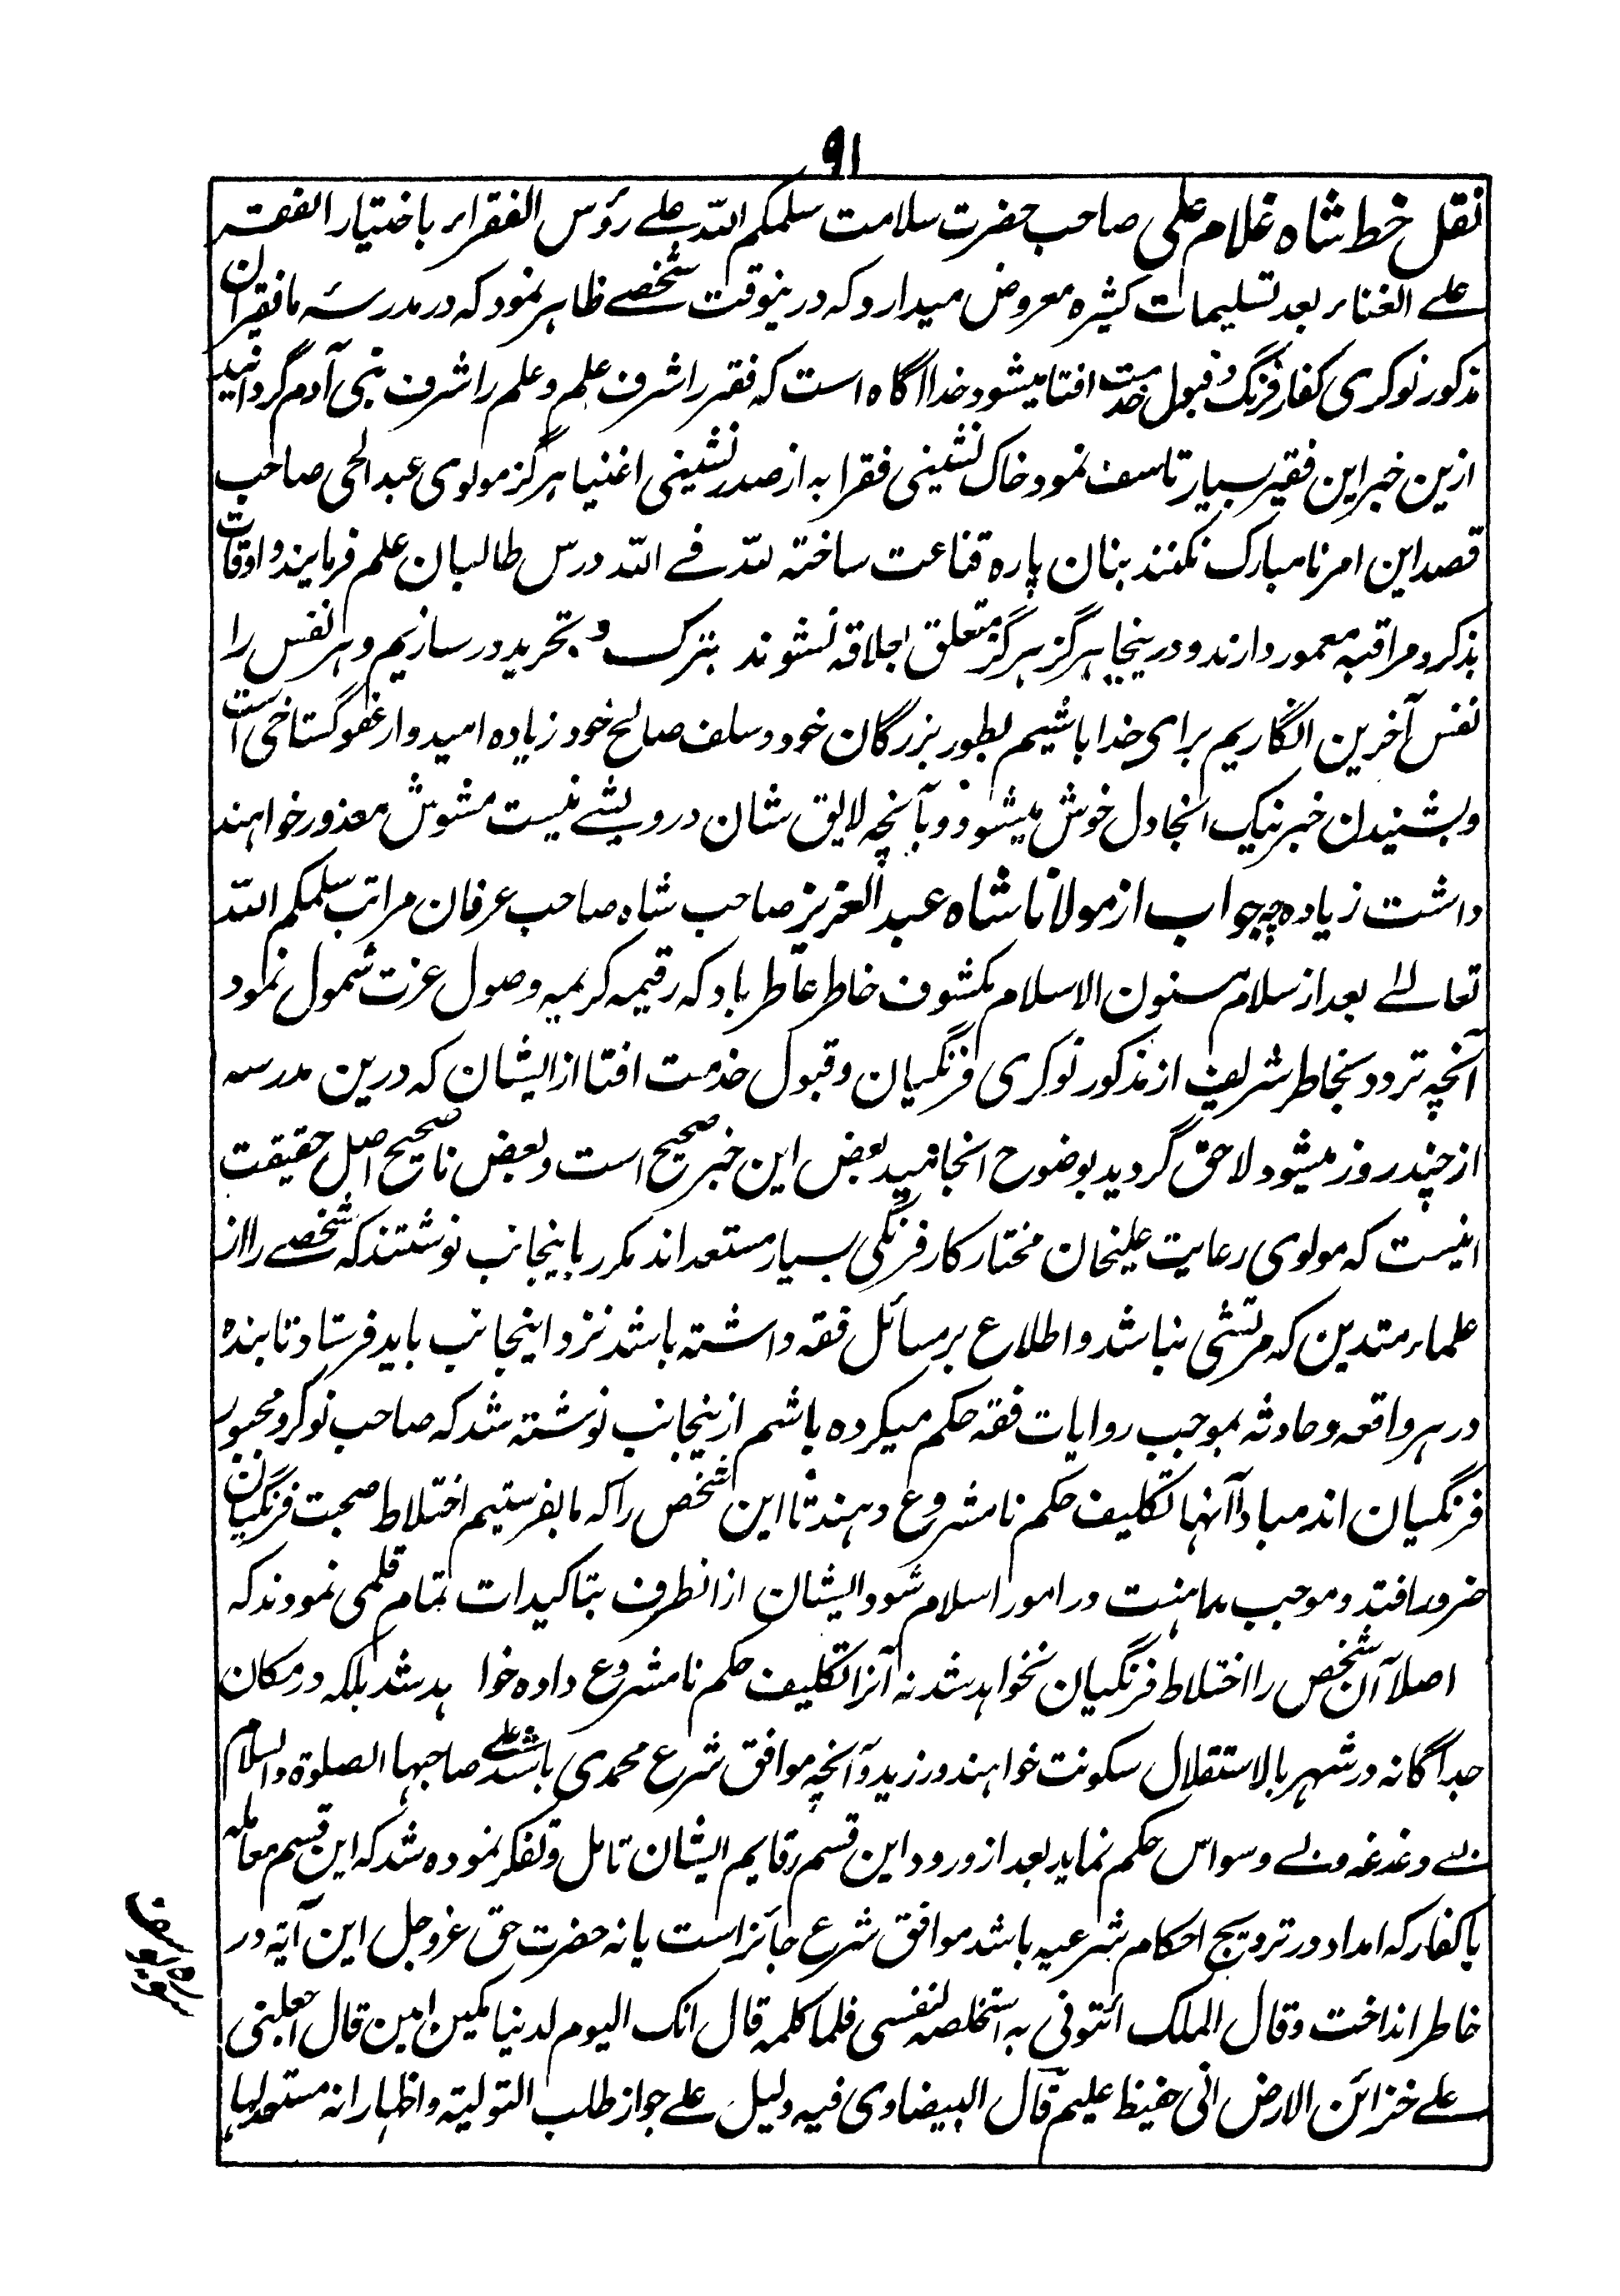 ۹۱
نقل خط شاه غلام علی صاحب حضرت سلامت سلمکم اللہ علے رؤس الفقراء باختیار الفقر
علے الغناء بعد تسلیمات کثیرہ معروض میدارد کہ درینوقت شخصے ظاہر نمود کہ در مدرسۂ ما فقیران
مذکور نوکری کفار فرنگ و قبول خدمت افتا میشود خدا آگاہ است کہ فقر را شرف علم و علم را شرف بنی آدم گردانید
ازین خبر این فقیر بسیار تاسف نمود خاک نشینی فقرا بہ از صدر نشینی اغنیا ہرگز مولوی عبد الحی صاحب
قصد این امر نامبارک نکنند بنان پارہ قناعت ساختہ للہ فے اللہ درس طالبان علم فرمایند و اوقات
بذکر و مراقبہ معمور دارند و درینجا ہرگز ہرگز متعلق اجلاقہ نشوند بترک و تجرید در سازیم و ہر نفس را
نفس آخرین انگاریم برای خدا باشیم بطور بزرگان خود و سلف صالح خود زیادہ امیدوار عفو گستاخی است
و بشنیدن خبر نیک انجا دل خوش میشود و بآنچہ لایق شان درویشے نیست مشوش معذور خواہند
داشت زیادہ چہ جواب از مولانا شاہ عبد العزیز صاحب شاہ صاحب عرفان مراتب سلمکم اللہ
تعالےٰ بعد از سلام مسنون الاسلام مکشوف خاطر عاطر باد کہ رقیمہ کریمہ وصول عزت شمول نمود
آنچہ تردد بخاطر شریف از مذکور نوکری فرنگیان و قبول خدمت افتا از ایشان کہ درین مدرسہ
از چند روز میشود لاحق گردید بوضوح انجامید بعض این خبر صحیح است و بعض نا صحیح اصل حقیقت
اینست کہ مولوی رعایت علیخان مختار کار فرنگی بسیار مستعد اند مکرر باینجانب نوشتند کہ شخصے را از
علماء متدین کہ مرتشی نباشد و اطلاع بر مسائل فقہ داشتہ باشد نزد اینجانب باید فرستاد تا بندہ
در ہر واقعہ و حادثہ بموجب روایات فقہ حکم میکردہ باشم ازینجانب نوشتہ شد کہ صاحب نوکر و مجبور
فرنگیان اند مبادا آنہا تکلیف حکم نامشروع دہند تا این شخص را کہ ما بفرستیم اختلاط صحبت فرنگیان
ضرور افتد و موجب مداہنت در امور اسلام شود ایشان از انطرف بتاکیدات تمام قلمی نمودند کہ
اصلا آن شخص را اختلاط فرنگیان نخواہد شد نہ آنرا تکلیف حکم نامشروع دادہ خواہد شد بلکہ در مکان
جداگانہ در شہر بالاستقلال سکونت خواہند ورزید و آنچہ موافق شرع محمدی باشد علی صاحبہا الصلوۃ والسلام
بے دغدغہ و بے وسواس حکم نماید بعد از ورود این قسم رقایم ایشان تامل و تفکر نمودہ شد کہ این قسم معاملہ
با کفار کہ امداد در ترویج احکام شرعیہ باشد موافق شرع جائز است یا نہ حضرت حق عزوجل این آیۃ در
خاطر انداخت وقال الملک ائتونی بہ استخلصہ لنفسی فلما کلمہ قال انک الیوم لدینا مکین امین قال اجعلنی
علے خزائن الارض انی حفیظ علیم قال البیضاوی فیہ دلیل علے جواز طلب التولیۃ و اظہار انہ مستعد لہا
سورہ یوسف